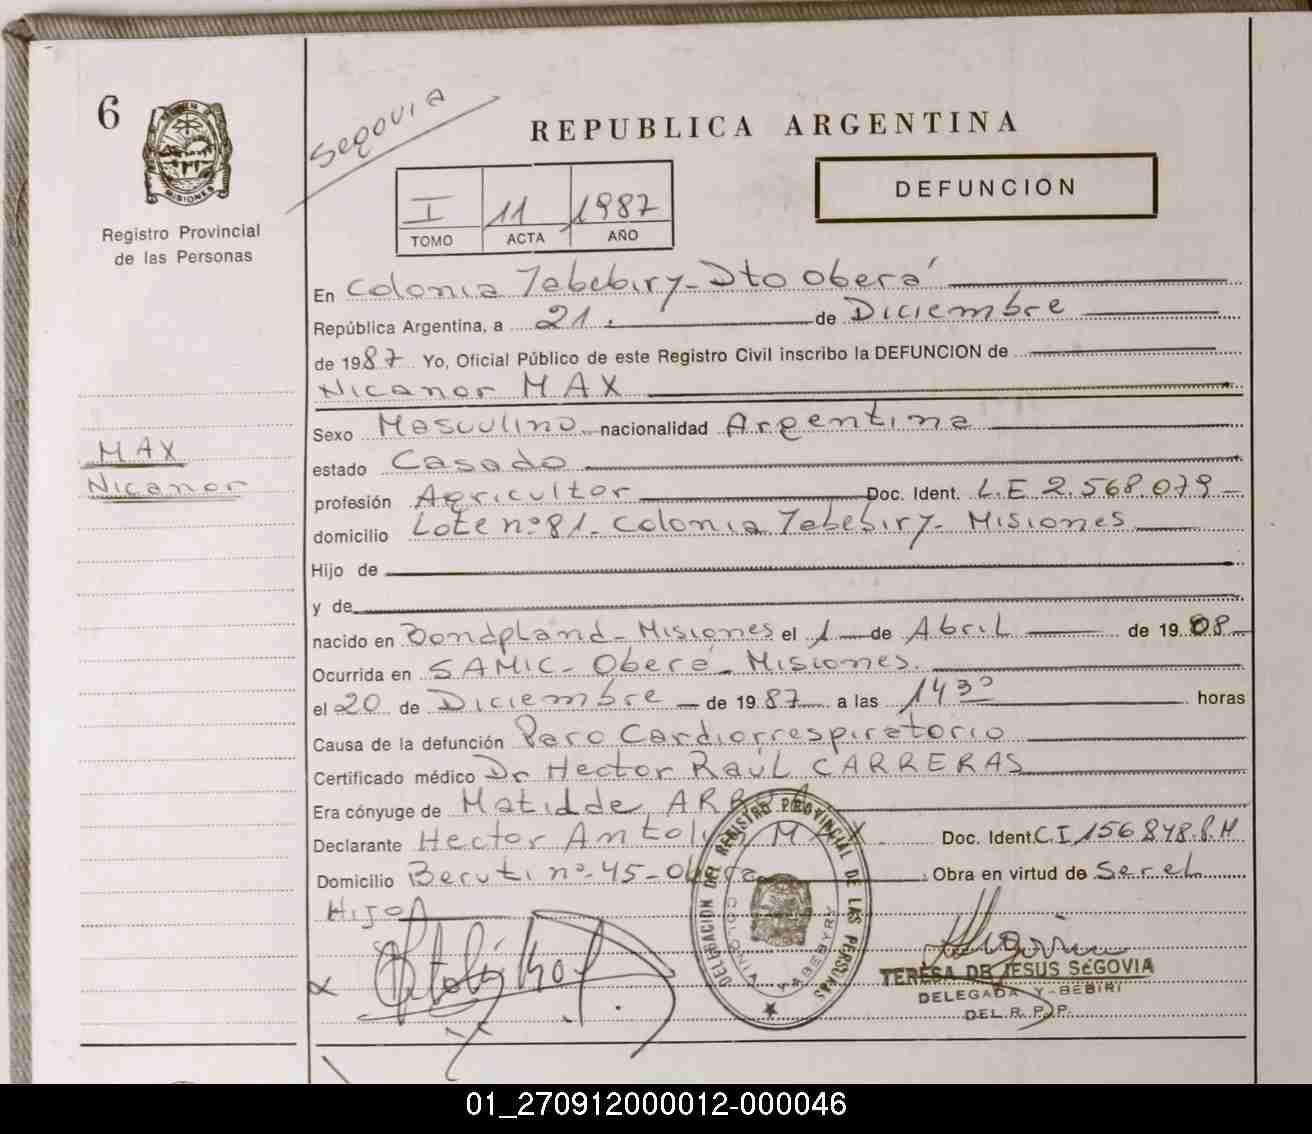 6
MISIONES
Registro Provincial
de las Personas
Segovia
REPUBLICA ARGENTINA
DEFUNCION
I 11 1987
TOMO ACTA AÑO
En Colonia Yabebiry - Dto Oberá
República Argentina, a 21 de Diciembre
de 1987 Yo, Oficial Público de este Registro Civil inscribo la DEFUNCION de
Nicanor MAX
MAX
Nicanor
Sexo Masculino nacionalidad Argentina
estado Casado
profesión Agricultor Doc. Ident. L.E 2.568.079
domicilio Lote nº 81 - Colonia Yabebiry - Misiones
Hijo de
y de
nacido en Bondpland - Misiones el 1 de Abril de 1908
Ocurrida en SAMIC - Oberá - Misiones.
el 20 de Diciembre de 1987 a las 14 30 horas
Causa de la defunción Paro Cardiorrespiratorio
Certificado médico Dr Hector Raúl CARRERAS
Era cónyuge de Matidde
Declarante Hector Antolin MAX. Doc. Ident C.I 156.848.P.M
Domicilio Beruti nº 45 - Oberá . Obra en virtud de Ser el
Hijo
DELEGACION DEL REGISTRO PROVINCIAL DE LAS PERSONAS
COLONIA YABEBYRY
TERESA DE JESUS SEGOVIA
DELEGADA Y-BEBIRI
DEL R. P. P.
01_270912000012-000046